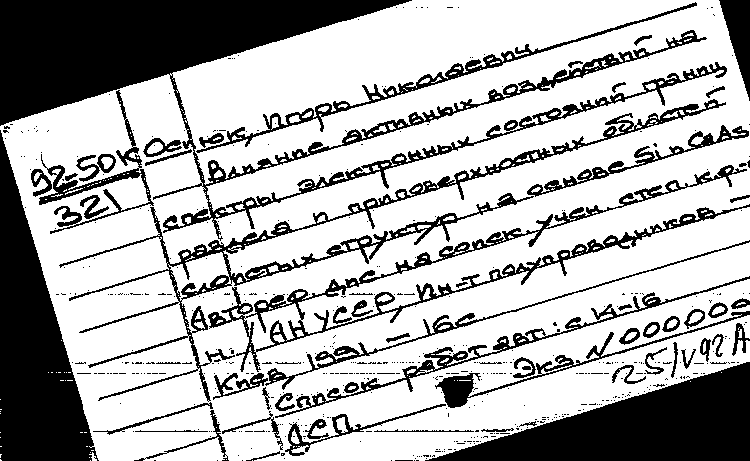 92-50К
321
Осиюк, Игорь Николаевич.
Влияние активных воздействий на
спектры электронных состояний границ
раздела и приповерхностных областей
слоистых структур на основе Si и GaAs:
Автореф. дис. на соиск. учен. степ. к.ф.-
н. / АН УССР, Ин-т полупроводников. -
Киев, 1991. - 16с
Список работ авт.: с. 14-16.
ДСП.
Экз. N 000009
25/V 92 А